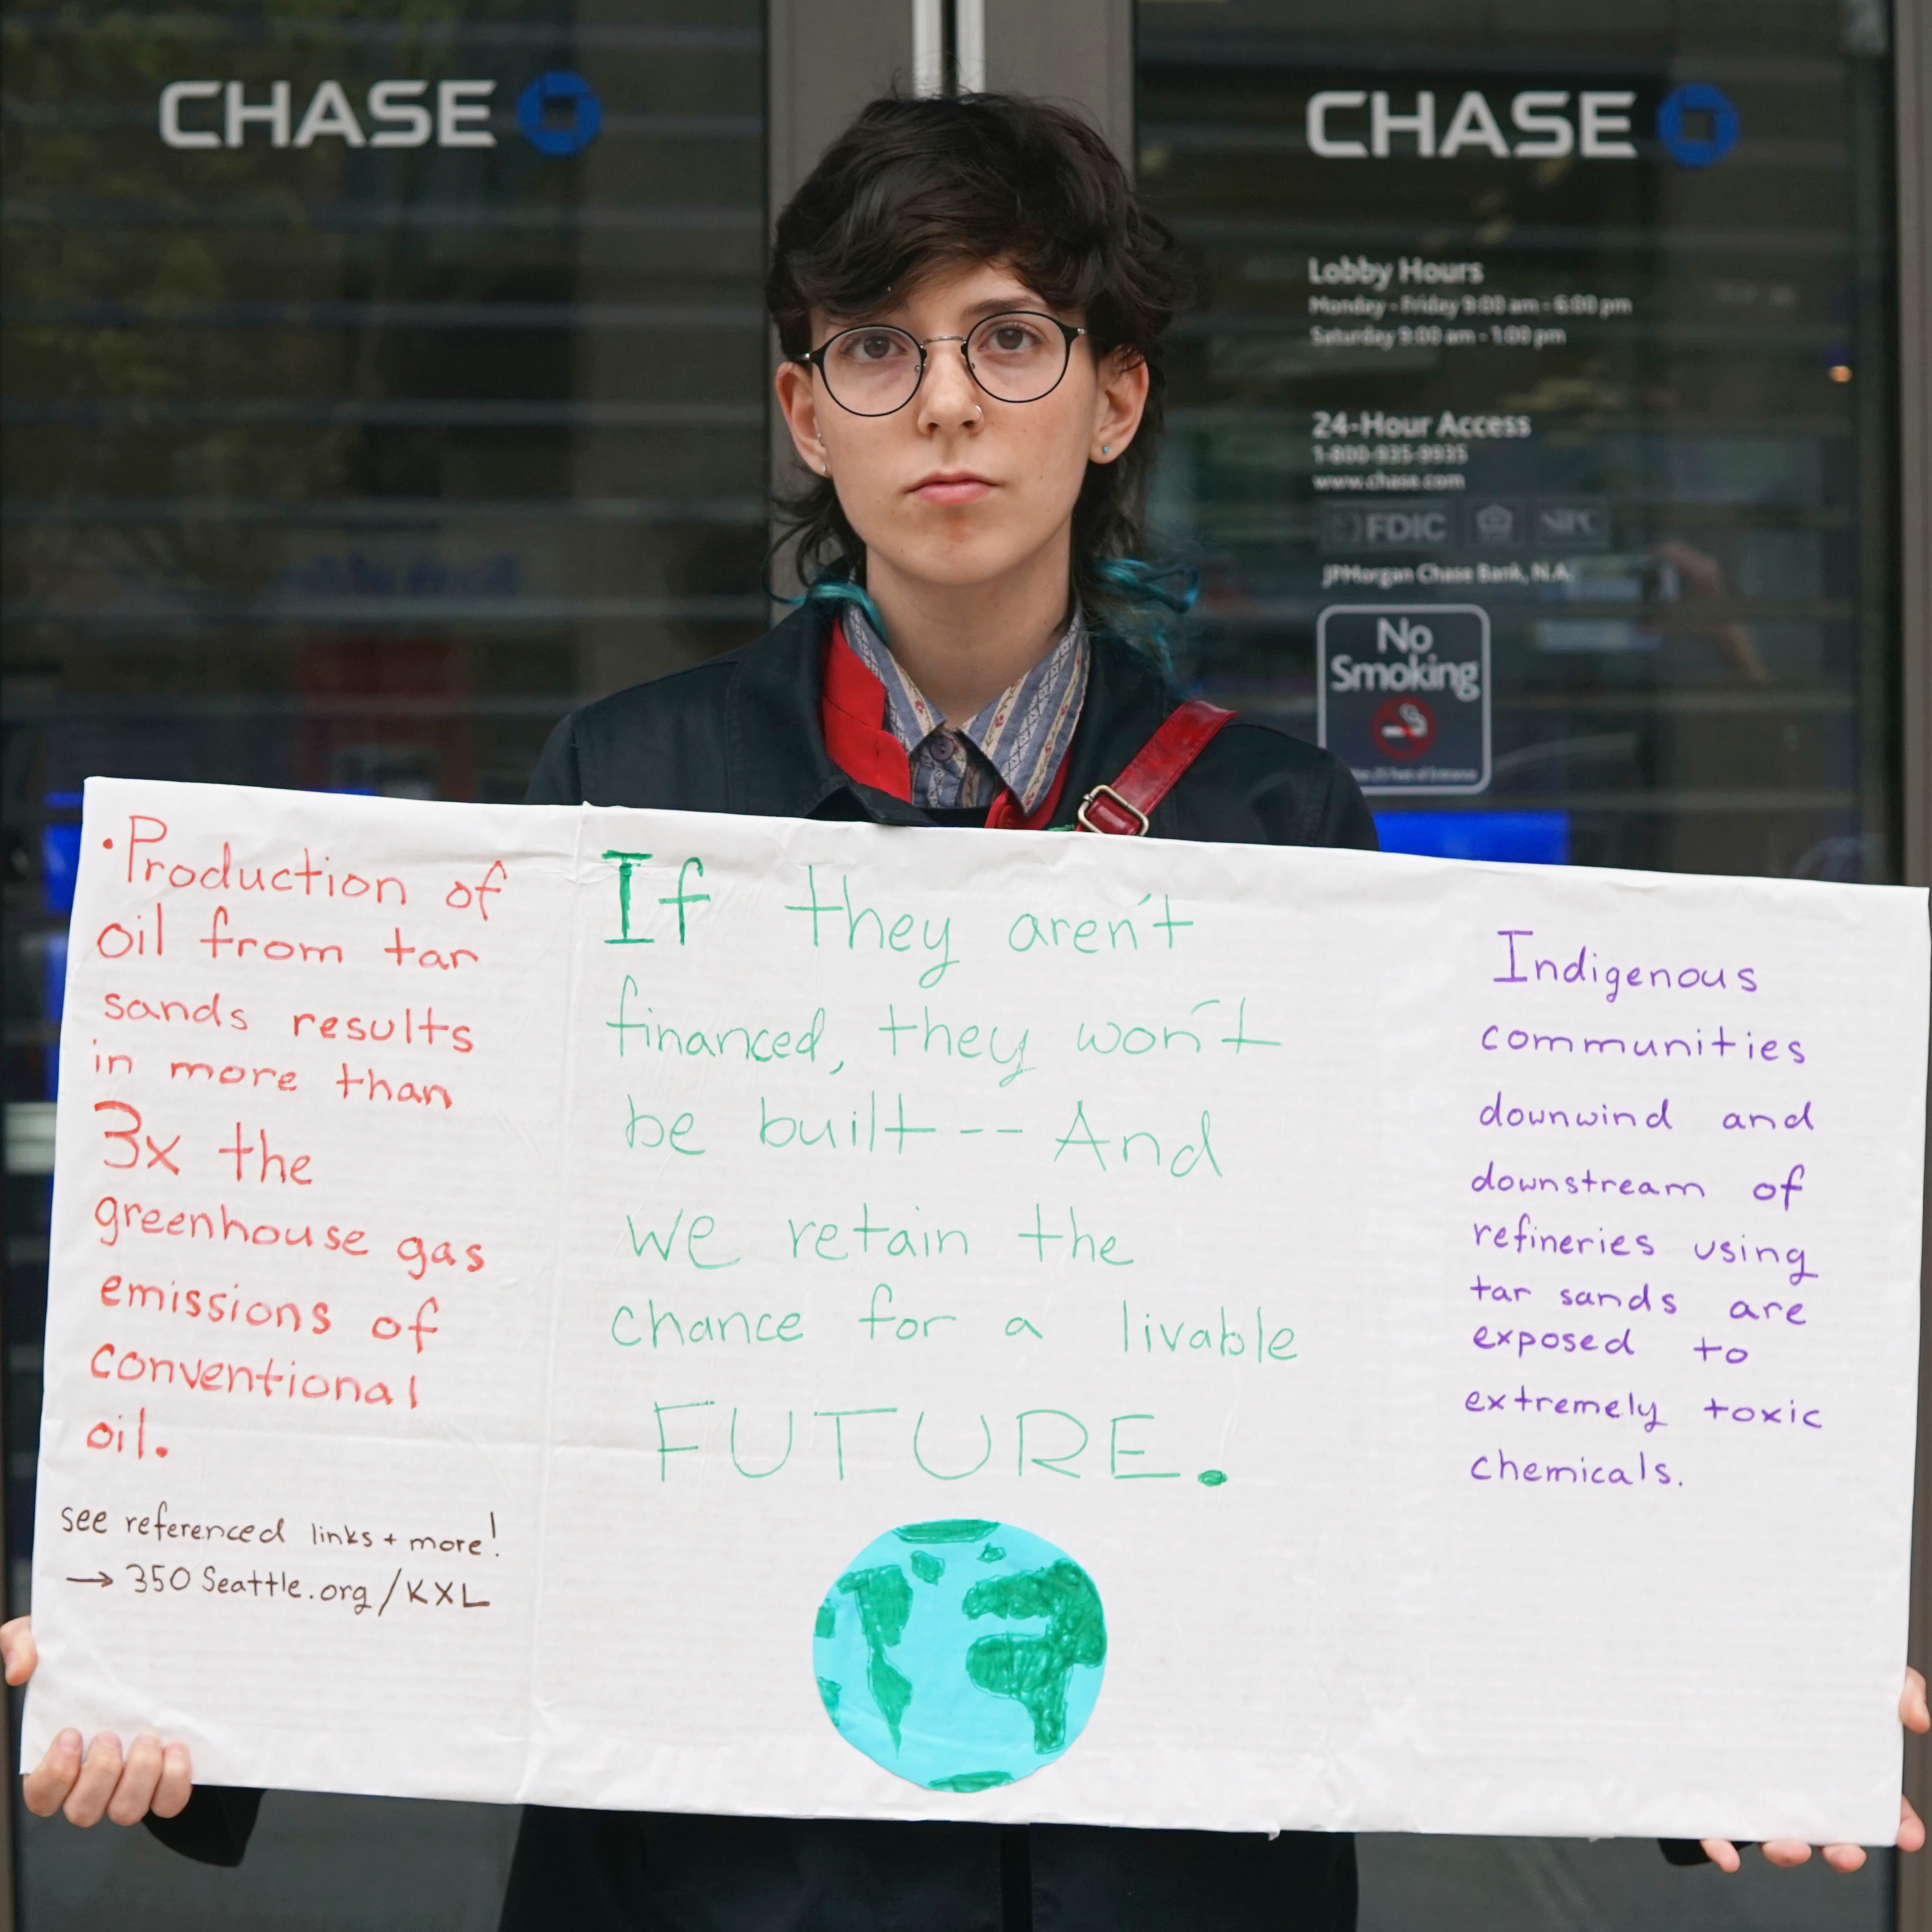 CHASE
CHASE
Lobby Hours
Monday - Friday 9:00 am - 6:00 pm
Saturday 9:00 am - 1:00 pm
24-Hour Access
1-800-935-9935
www.chase.com
FDIC
JPMorgan Chase Bank, N.A.
No
Smoking
•Production of
oil from tar
sands results
in more than
3x the
greenhouse gas
emissions of
conventional
oil.
see referenced links + more!
→ 350 Seattle.org/KXL
If they aren't
financed, they won't
be built -- And
we retain the
chance for a livable
FUTURE.
Indigenous
communities
downwind and
downstream of
refineries using
tar sands are
exposed to
extremely toxic
chemicals.